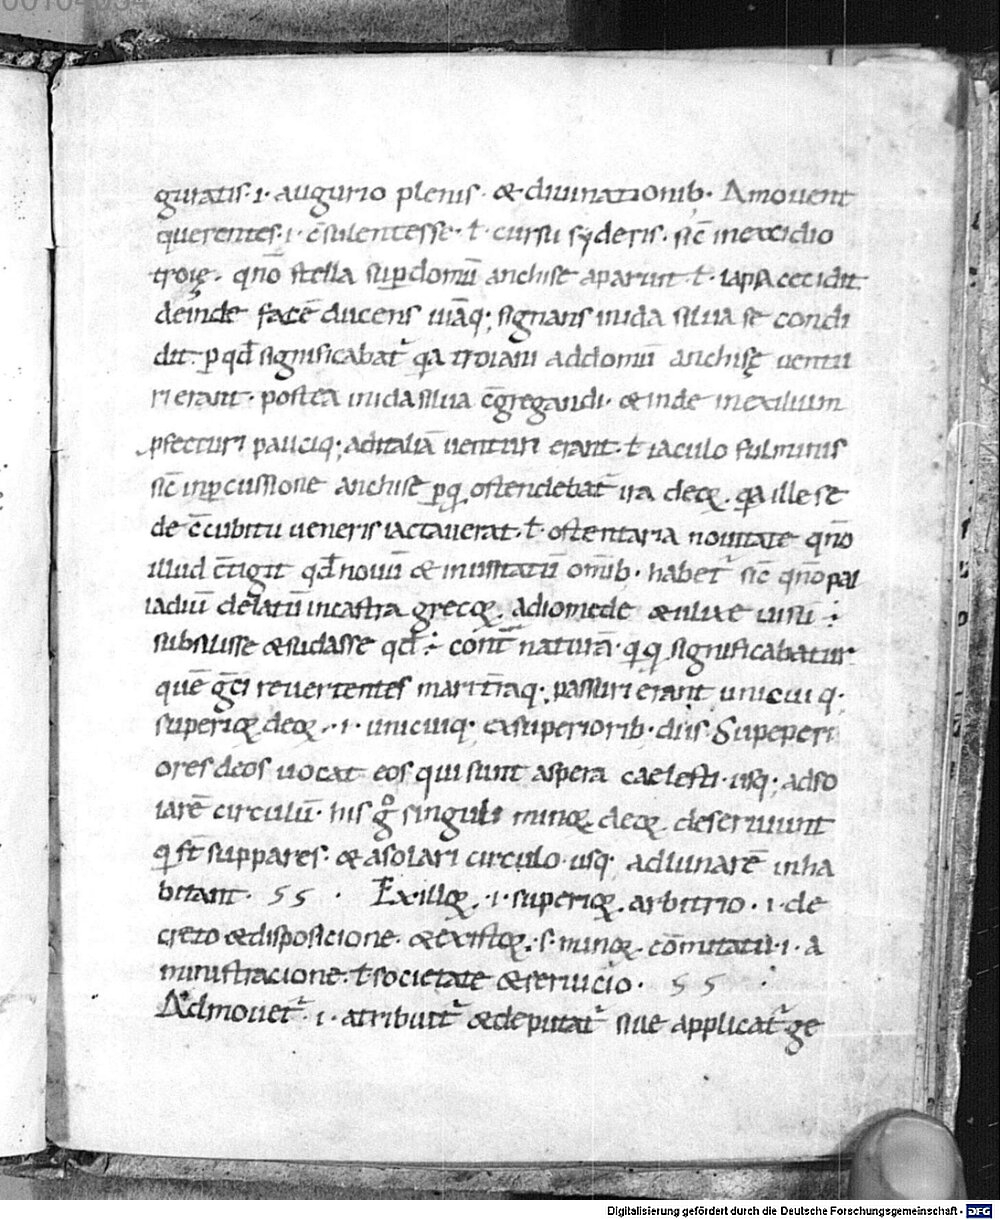 guratis · i · augurio plenis · & diuinationib; · Amouent
querentes · i · c̄sulentesse · ł · cursu syderis · sic̄ inexcidio
troię · qn̄o stella sup̱ domū anchise aparuit · ł · lapsa cecidit
deinde facē ducens uiāq; signans inida silua se condi
dit · p qđ significabat᷑ qa troiani addomū anchisę uentu
ri erant · postea inida silua c̄gregandi · & inde inexilium
pfecturi pauciq; aditaliā uenturi erant · ł iaculo fulminis
sic̄ inp̱cussione anchise p̱ q ostendebat᷑ ira deoꝝ qa ille se
de c̄cubitu ueneris iactauerat · ł · ostentaria nouitate qn̄o
illud c̄tigit qđ nouū & inusitatū om̄ib; habet᷑ sic̄ qn̄o pal
ladiū delatū incastra grecoꝝ adiomede & ulixe uisū ÷
subsiluisse & sudasse qđ ÷ cont̄ naturā · q q significabatur
quē gc̄i reuertentes mari t̄raq; passuri erant unicuiq;
superioꝝ deoꝝ · i · unicuiq; exsuperiorib; diis · Supeperi
ores deos uocat eos qui sunt aspera caelesti · usq; adso
larē circulū · his gͦ singuli minoꝝ deoꝝ deseruiunt
q st̄ suppares · & asolari circulo · usq; adlunarē inha
bitant · 55 · Ex illoꝝ · i · superioꝝ arbitrio · i · de
creto & disposicione · & ex istoꝝ · s · minoꝝ cōmitatu · i · a
ministracione · ł societate & seruicio · 55 ·
Admouet᷑ · i · atribuit᷑ & deputat᷑ siue applicat᷑ ge
Digitalisierung gefördert durch die Deutsche Forschungsgemeinschaft - DFG